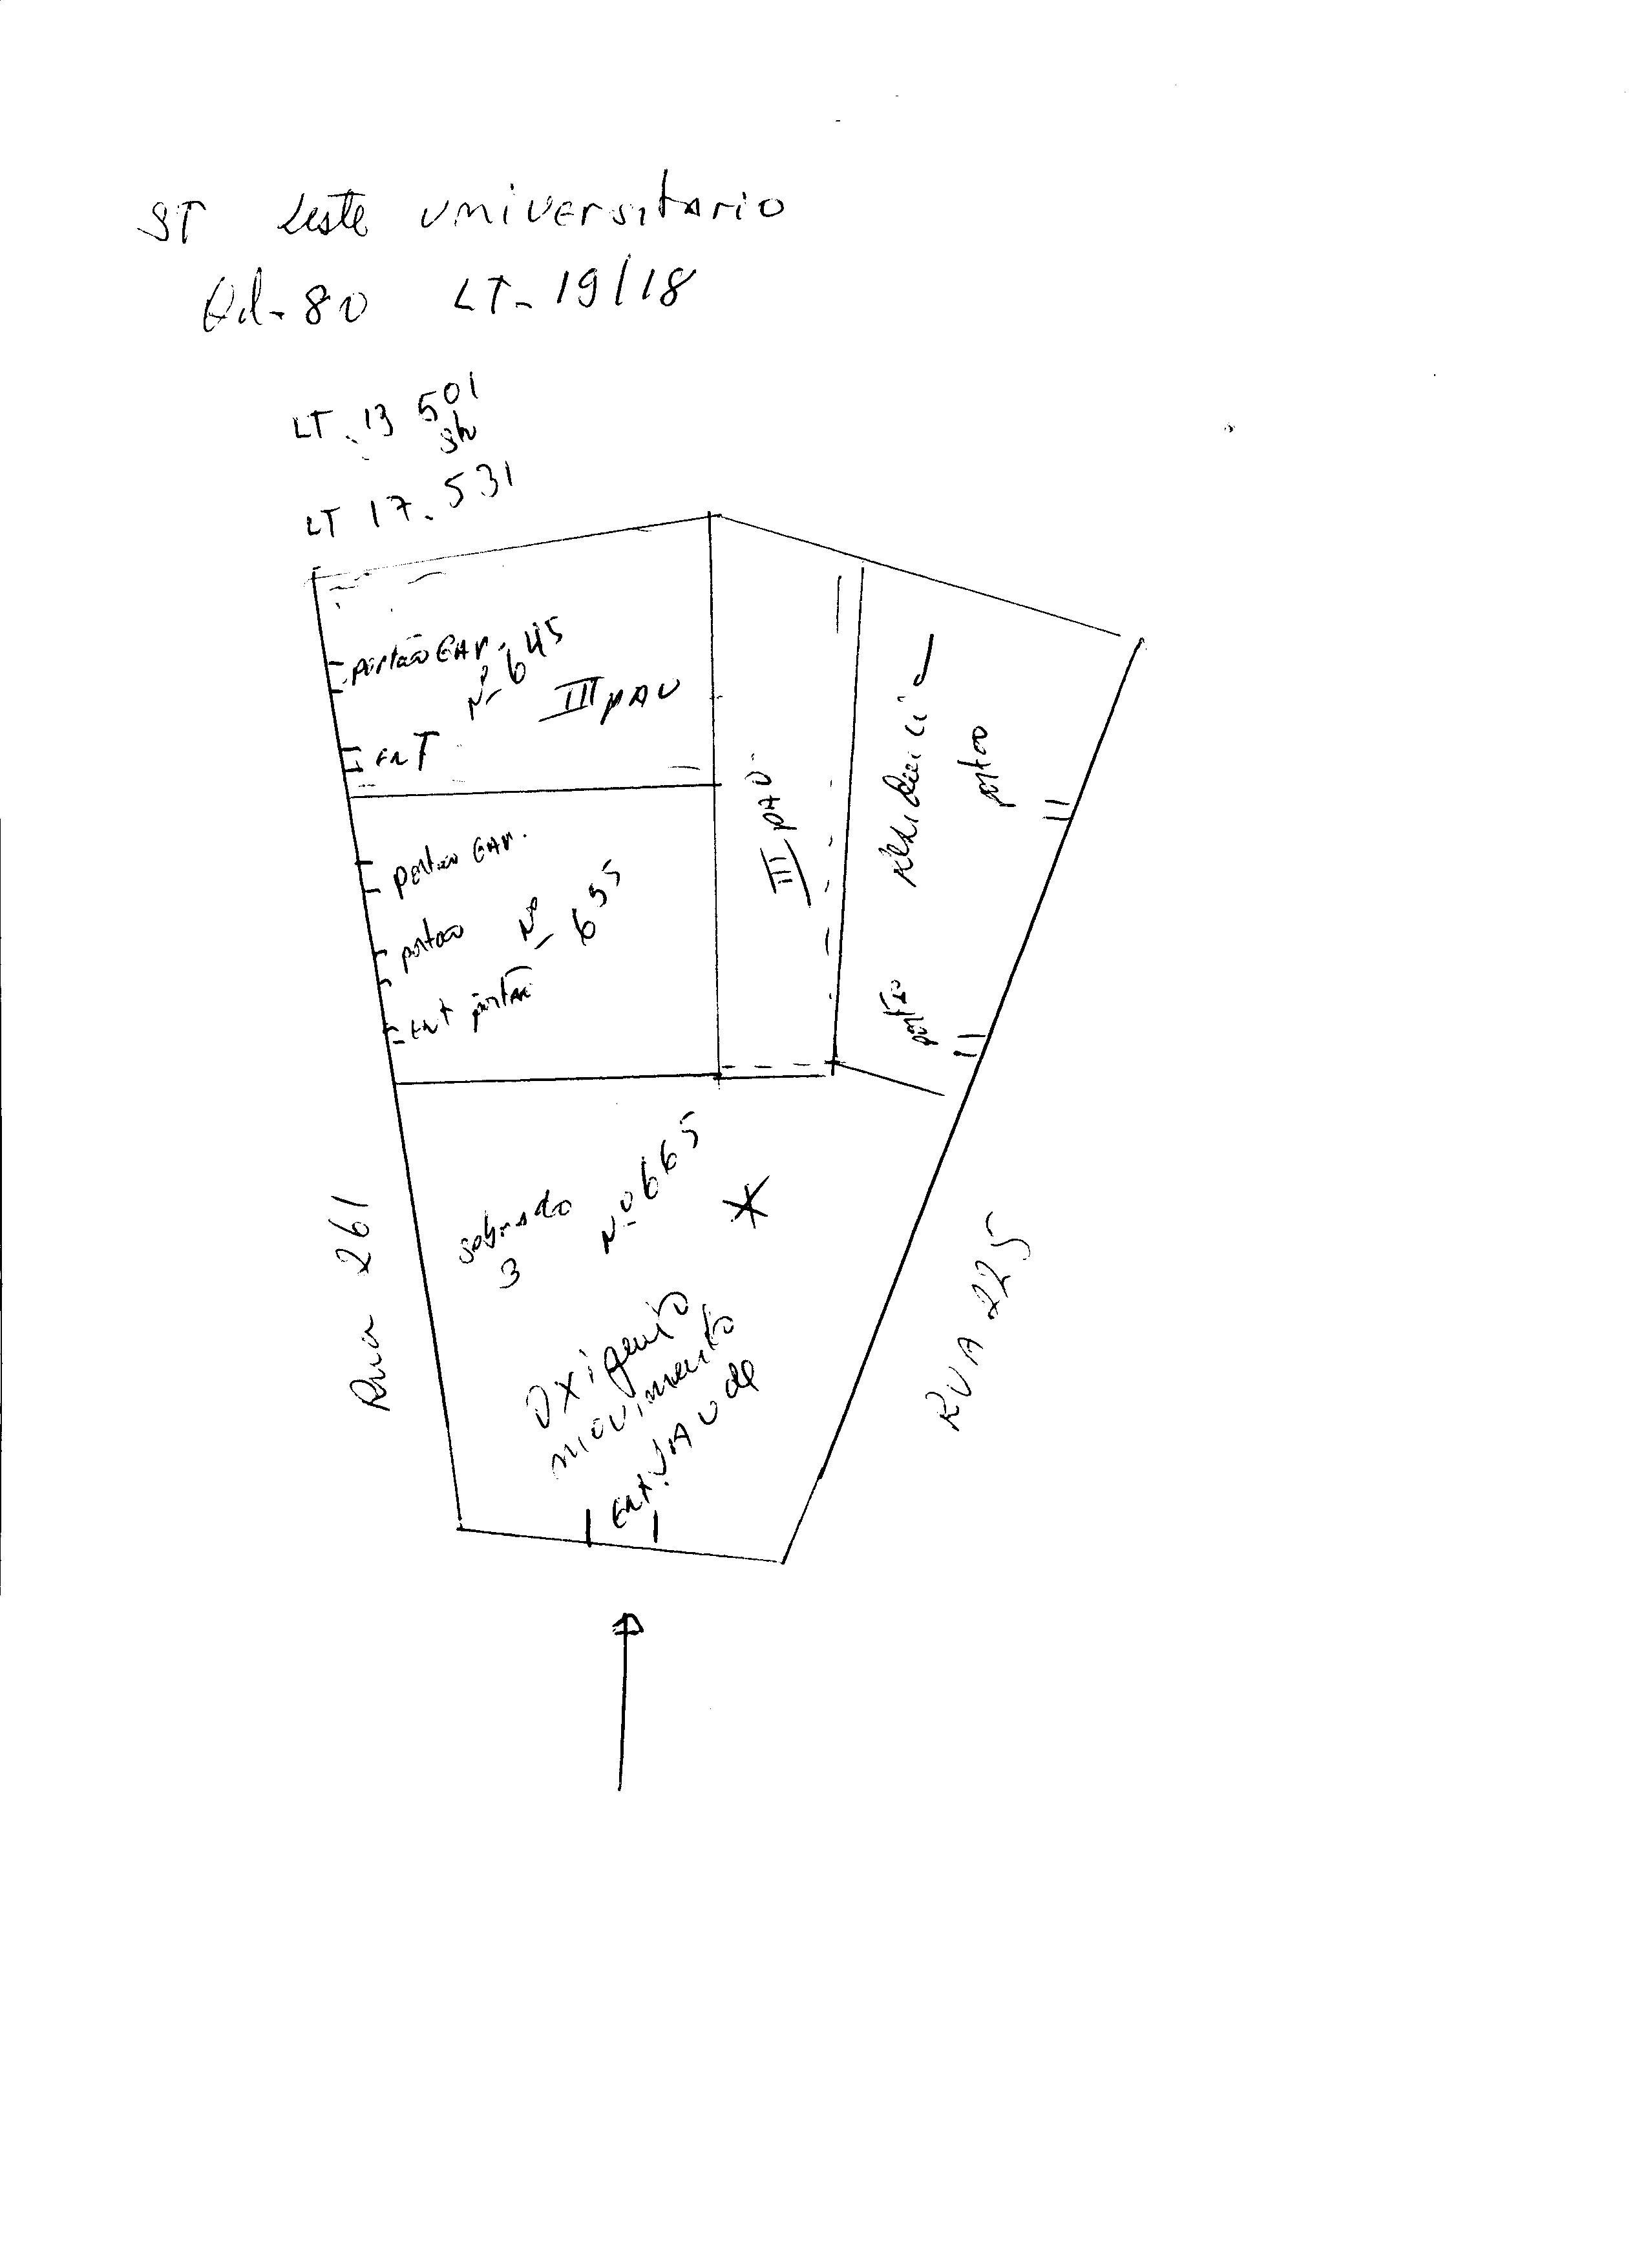 ST Leste universitario
Qd-80 LT-19/18
LT. 13 501
LT 17. 531
portão GAr. Nº 645
III pAU
EnT
portao GAr.
portao Nº 655
Ent portão
III pAU
Residencia
portao
portão
sobrado Nº 665
3
Oxigenio
movimento
Ent. SAUde
Rua 261
RUA 225